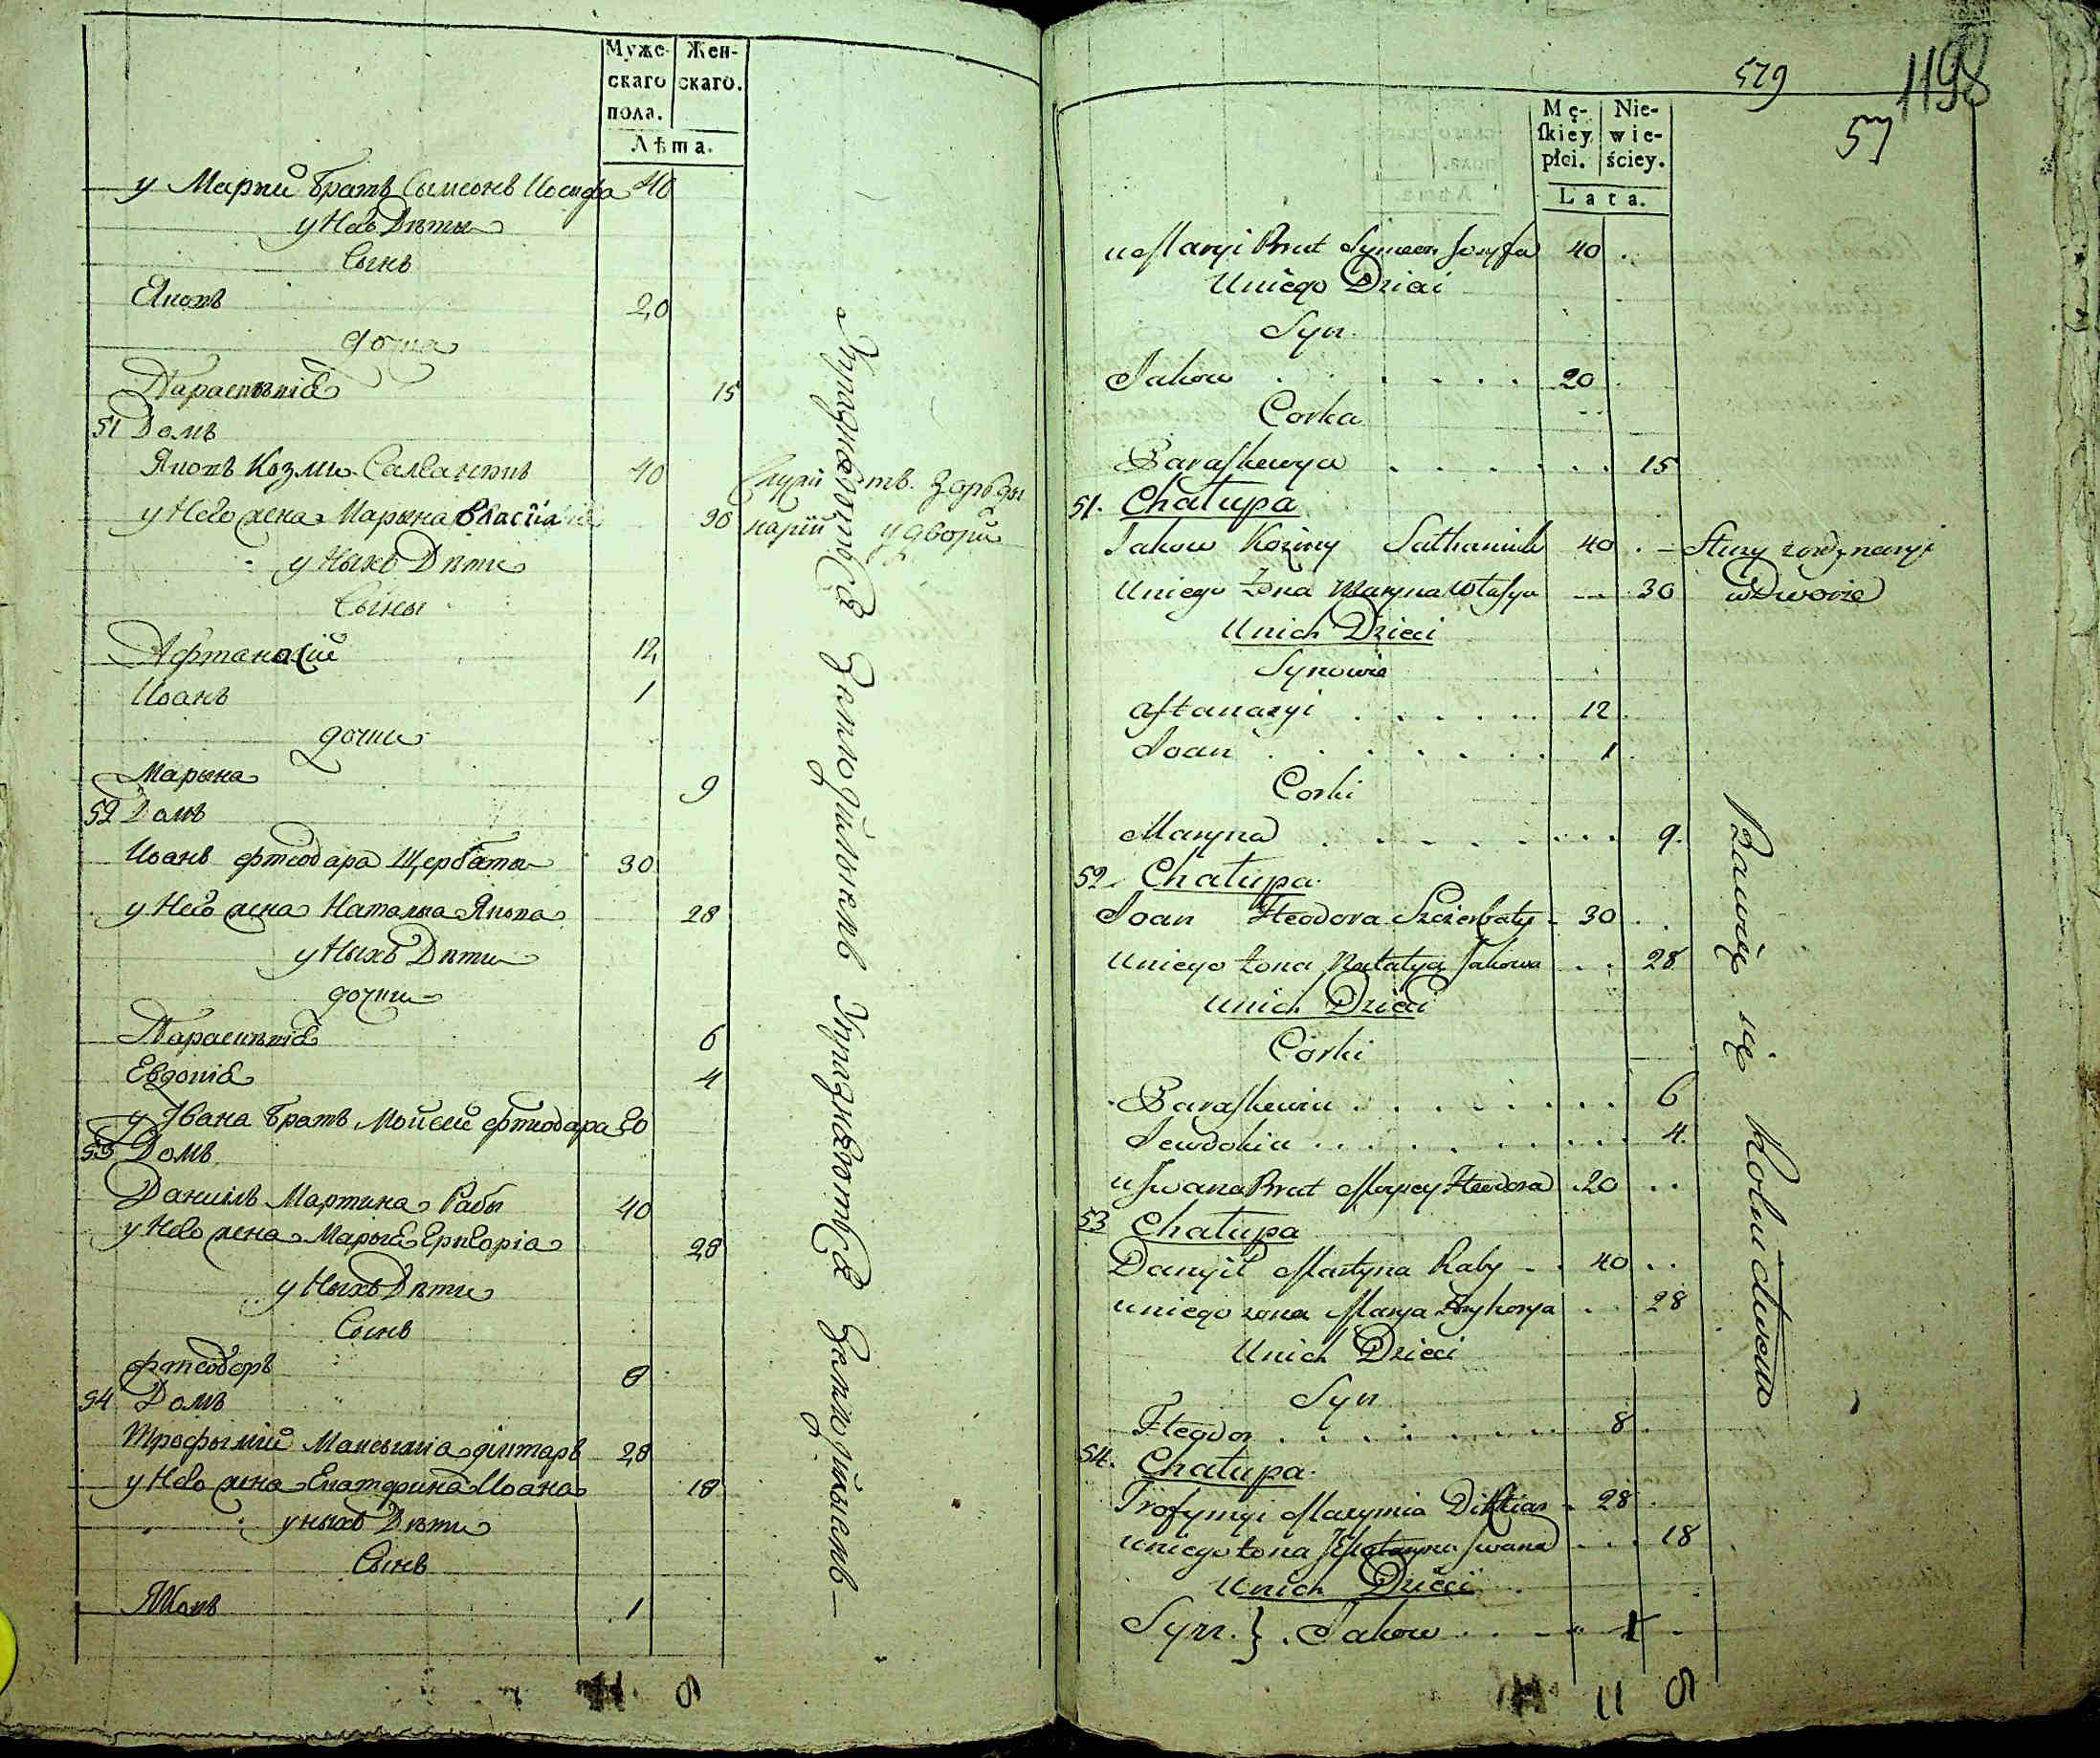 Муже-
скаго
пола.
Жен-
скаго.
Лѣта.
у Марии братъ Сымеонъ Иосифа 40
у Него Дѣти
Сынъ
Яковъ 20
дочка
Параскевiя 15
51 Домъ
Яковъ Козми 40
у Него жена Марына Власiа 30
у Ныхъ Дѣти
Сыны
Афтаназiй 12
Иоанъ 1
дочки
Марына 9
52 Домъ
Иоанъ Фтеодара Щербаты 30
у Него жена Наталья Якова 28
у Ныхъ Дѣти
дочки
Параскевiя 6
Евдокiя 4
у Ивана братъ Мойсей Фтеодара 20
53 Домъ
Данiилъ Мартина Рабы 40
у Него жена Марья Григорiа 28
у Ныхъ Дѣти
Сынъ
Фтеодоръ 8
54 Домъ
Трофымiй Максымiа 28
у Него жена Екатерина Иоана 18
у ныхъ Дѣти
Сынъ
Яковъ 1
11 6
у дворы
Упражняются Земледѣлиемъ Упражняются Земледѣлиемъ
579
1198
57
Mę-
ſkiey
płci.
Nie-
wie-
ściey.
Lata.
u Maryi Brat Symeon Jozyfa 40
Uniego Dzieci
Syn
Jakow 20
Corka
Paraſkewya 15
51. Chałupa
Jakow Koźmy 40 Służy z ordynaryi
Uniego Żona Maryna Własya 30 w Dworze
Unich Dzieci
Synowie
Aftanazyi 12
Joan 1
Corki
Maryna 9.
52. Chałupa
Joan Fteodora Szczerbaty 30
Uniego Żona Natalya Jakowa 28
Unich Dzieci
Córki
Paraſkewia 6
Jewdokia 4.
u Iwana Brat Moysey Fteodora 20
53 Chałupa
Danyił Martyna Raby 40
uniego żona Marya Hryhorya 28
Unich Dzieci
Syn
Fteodor 8
54. Chałupa
Trofymyi Maxymia 28
uniego żona Jekateryna Iwana 18
Unich Dzieci
Syn } Jakow 1
11 6
Bawię się Rolnictwem